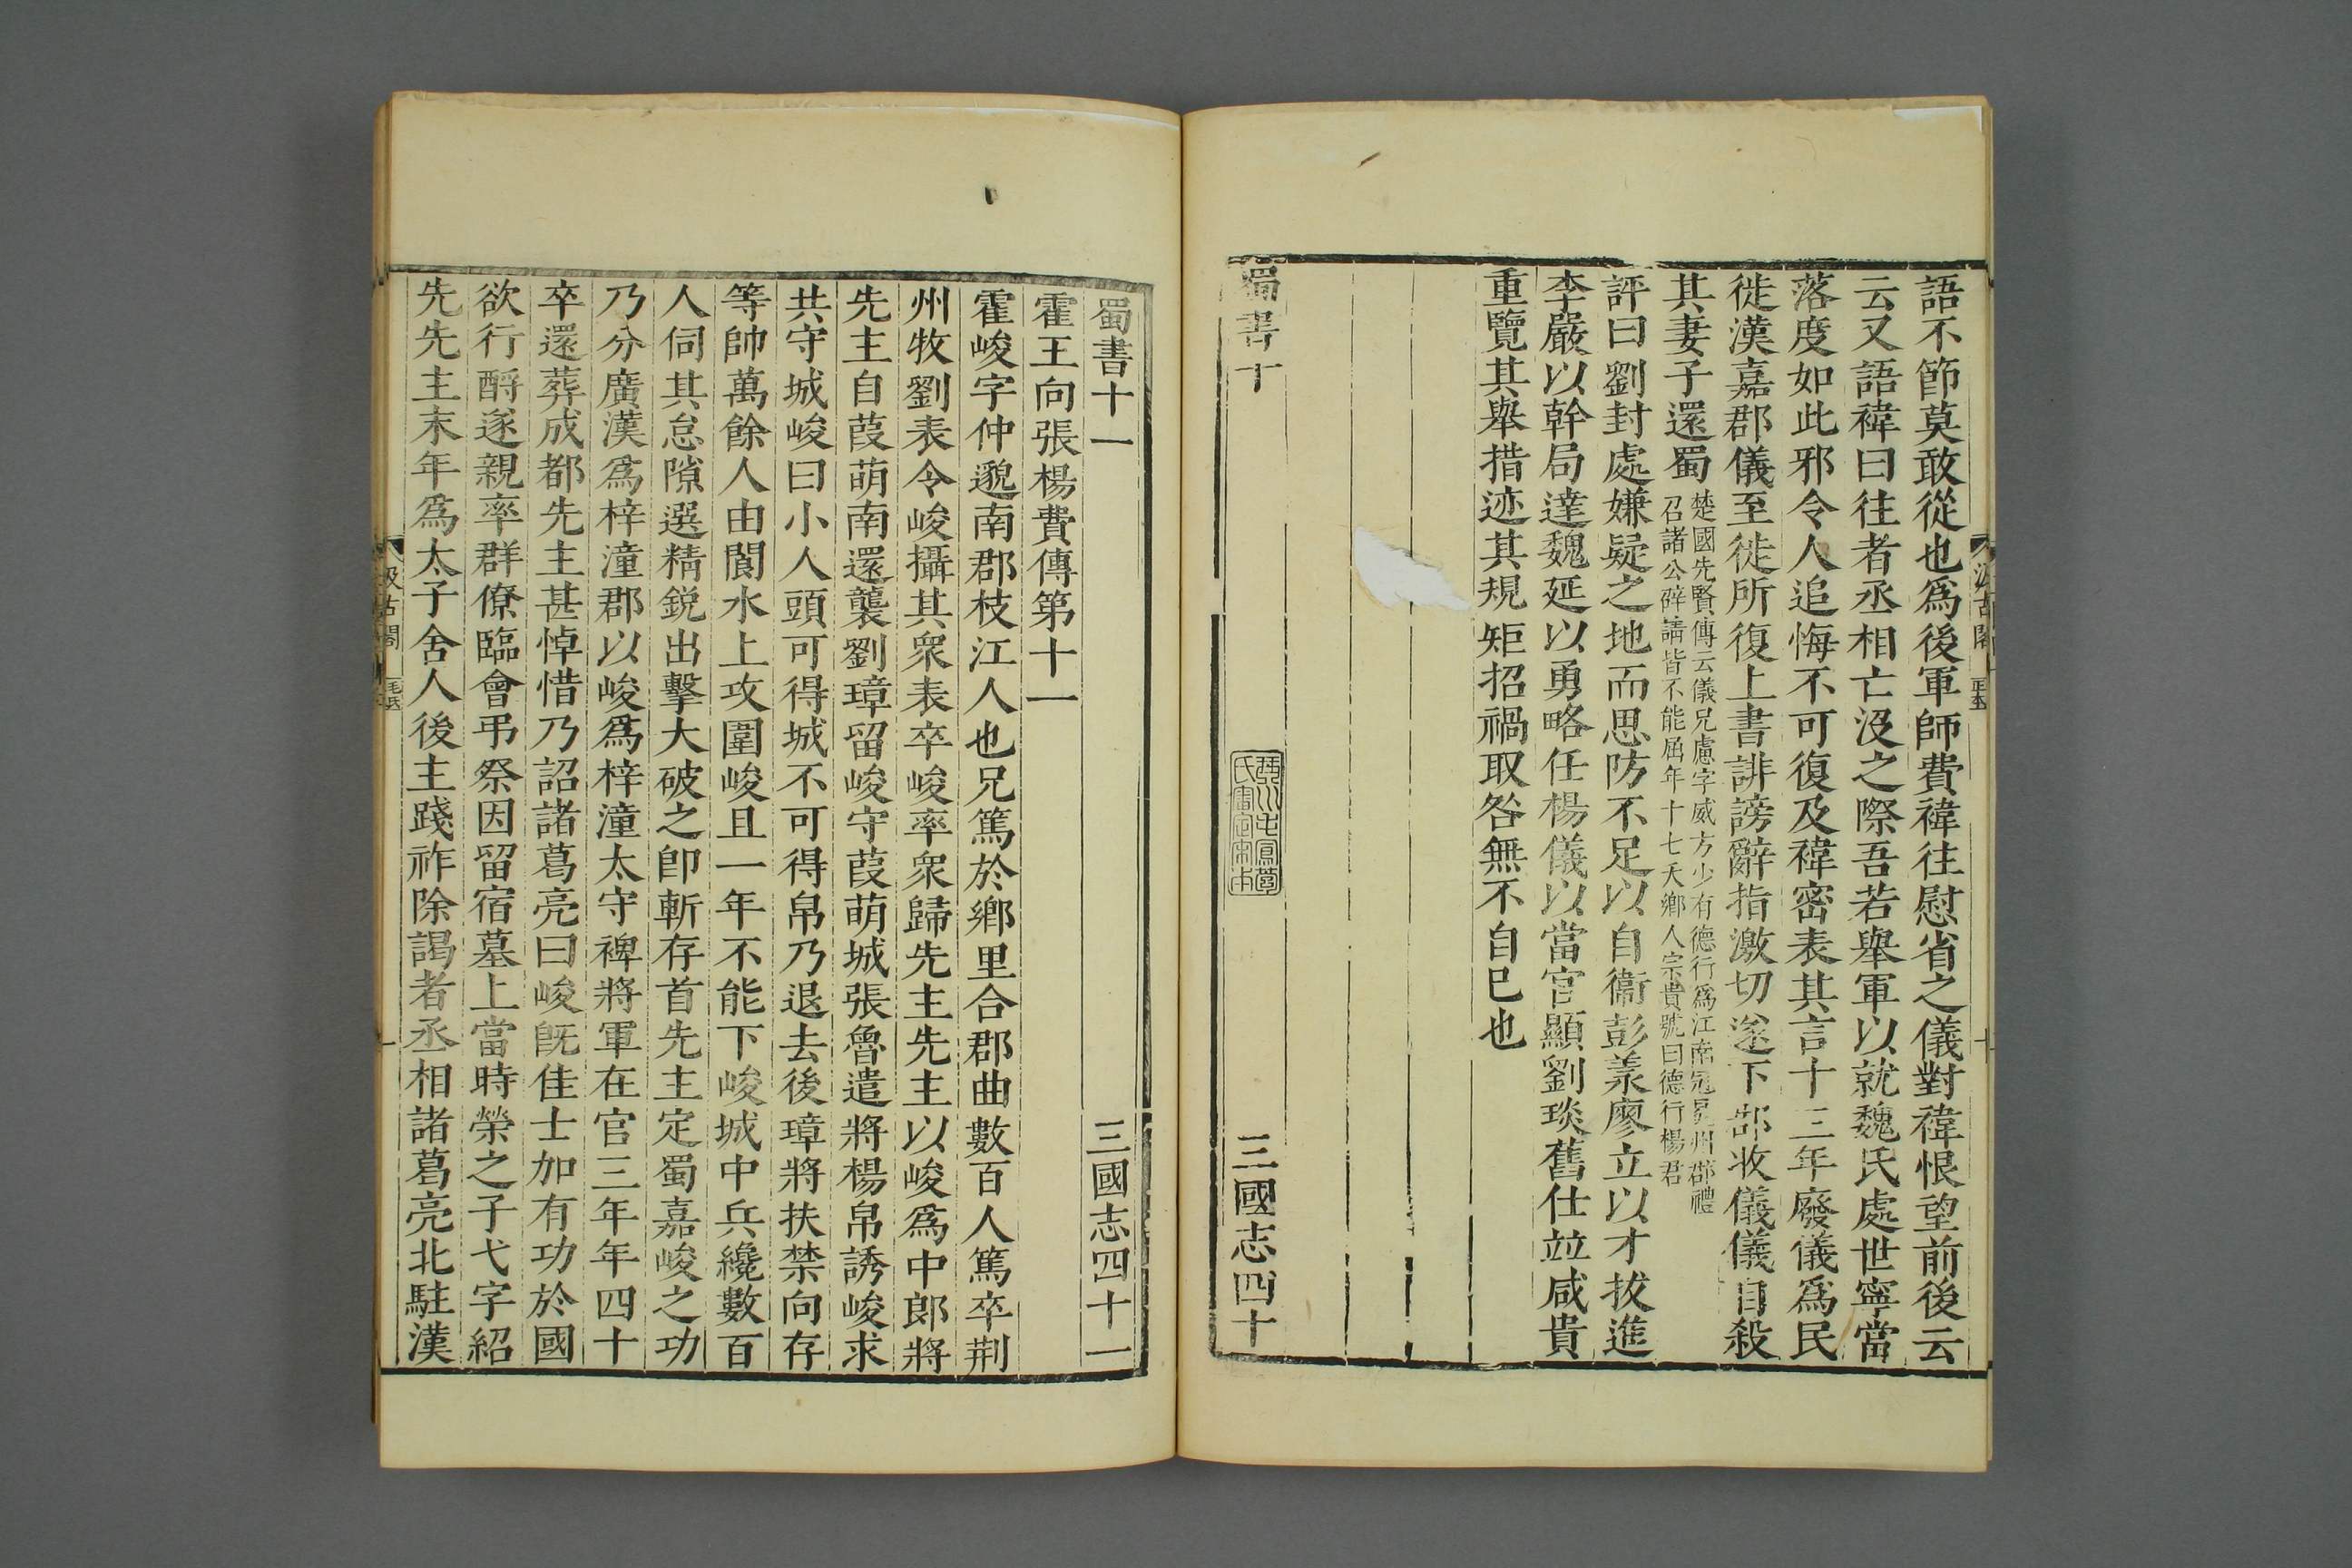 語不節莫敢從也爲後軍師費禕往慰省之儀對禕恨望前後云
云又語禕曰往者丞相亡沒之際吾若舉軍以就魏氏處世寧當
落度如此邪令人追悔不可復及禕密表其言十三年廢儀爲民
徙漢嘉郡儀至徙所復上書誹謗辭指激切遂下郡收儀儀自殺
其妻子還蜀
楚國先賢傳云儀兄慮字威方少有德行爲江南冠冕州郡禮
召諸公辟請皆不能屈年十七夭鄉人宗貴號曰德行楊君
評曰劉封處嫌疑之地而思防不足以自衞彭羕廖立以才拔進
李嚴以幹局達魏延以勇略任楊儀以當官顯劉琰舊仕竝咸貴
重覽其舉措迹其規矩招禍取咎無不自已也
蜀書十 三國志四十
蜀書十一 三國志四十一
霍王向張楊費傳第十一
霍峻字仲邈南郡枝江人也兄篤於鄉里合郡曲數百人篤卒荆
州牧劉表令峻攝其衆表卒峻率衆歸先主先主以峻爲中郎將
先主自葭萌南還襲劉璋留峻守葭萌城張魯遣將楊帛誘峻求
共守城峻曰小人頭可得城不可得帛乃退去後璋將扶禁向存
等帥萬餘人由閬水上攻圍峻且一年不能下峻城中兵纔數百
人伺其怠隙選精銳出擊大破之卽斬存首先主定蜀嘉峻之功
乃分廣漢爲梓潼郡以峻爲梓潼太守裨將軍在官三年年四十
卒還葬成都先主甚悼惜乃詔諸葛亮曰峻旣佳士加有功於國
欲行酹遂親率群僚臨會弔祭因留宿墓上當時榮之子弋字紹
先先主末年爲太子舍人後主踐祚除謁者丞相諸葛亮北駐漢
汲古閣